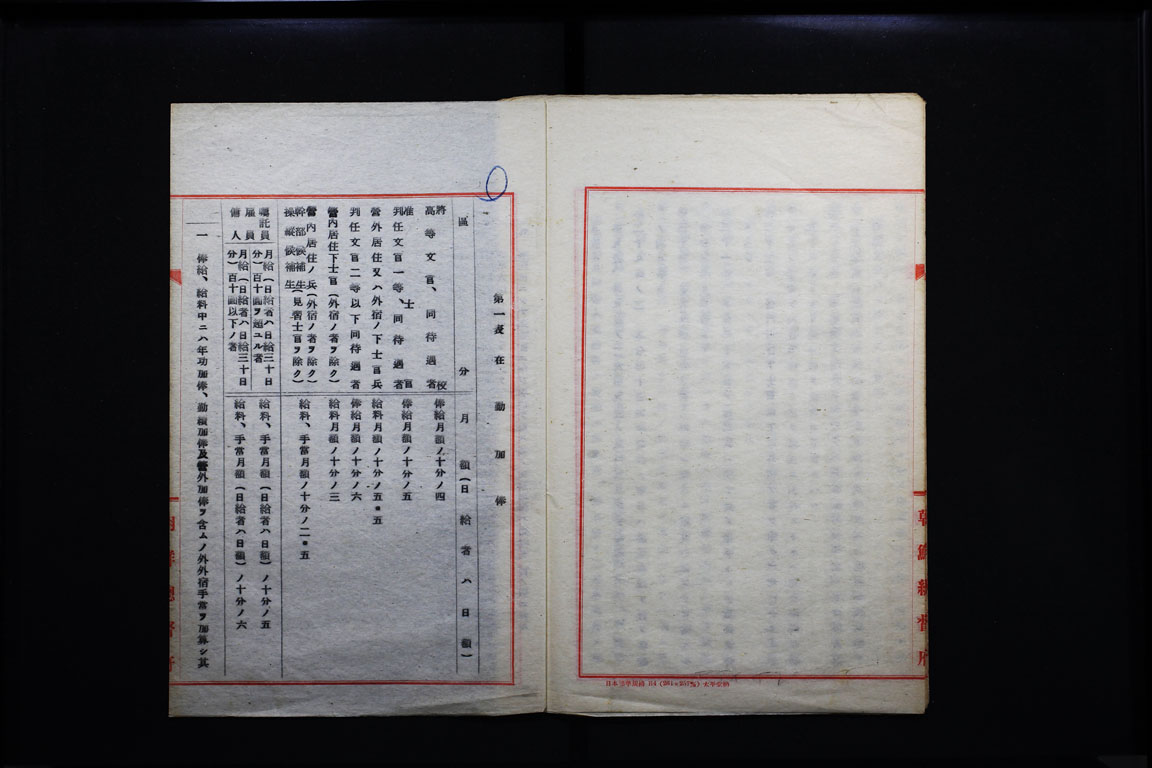 朝鮮總督府
第一表 在勤加俸
區分 月額(日給者ハ日額)
將校
高等文官、同待遇者 俸給月額ノ十分ノ四
准士官
判任文官一等、同待遇者 俸給月額ノ十分ノ五
營外居住又ハ外宿ノ下士官兵 給料月額ノ十分ノ五・五
判任文官二等以下同待遇者 俸給月額ノ十分ノ六
營内居住下士官(外宿ノ者ヲ除ク) 給料月額ノ十分ノ三
營内居住ノ兵(外宿ノ者ヲ除ク)
幹部候補生(見習士官ヲ除ク)
操縱候補生
給料、手當月額ノ十分ノ二・五
囑託員
雇員
傭人
月給(日給者ハ日給三十日分)百十圓ヲ超ユル者 給料、手當月額(日給者ハ日額)ノ十分ノ五
月給(日給者ハ日給三十日分)百十圓以下ノ者 給料、手當月額(日給者ハ日額)ノ十分ノ六
一 俸給、給料中ニハ年功加俸、勤續加俸及營外加俸ヲ含ムノ外外宿手當ヲ加算シ其